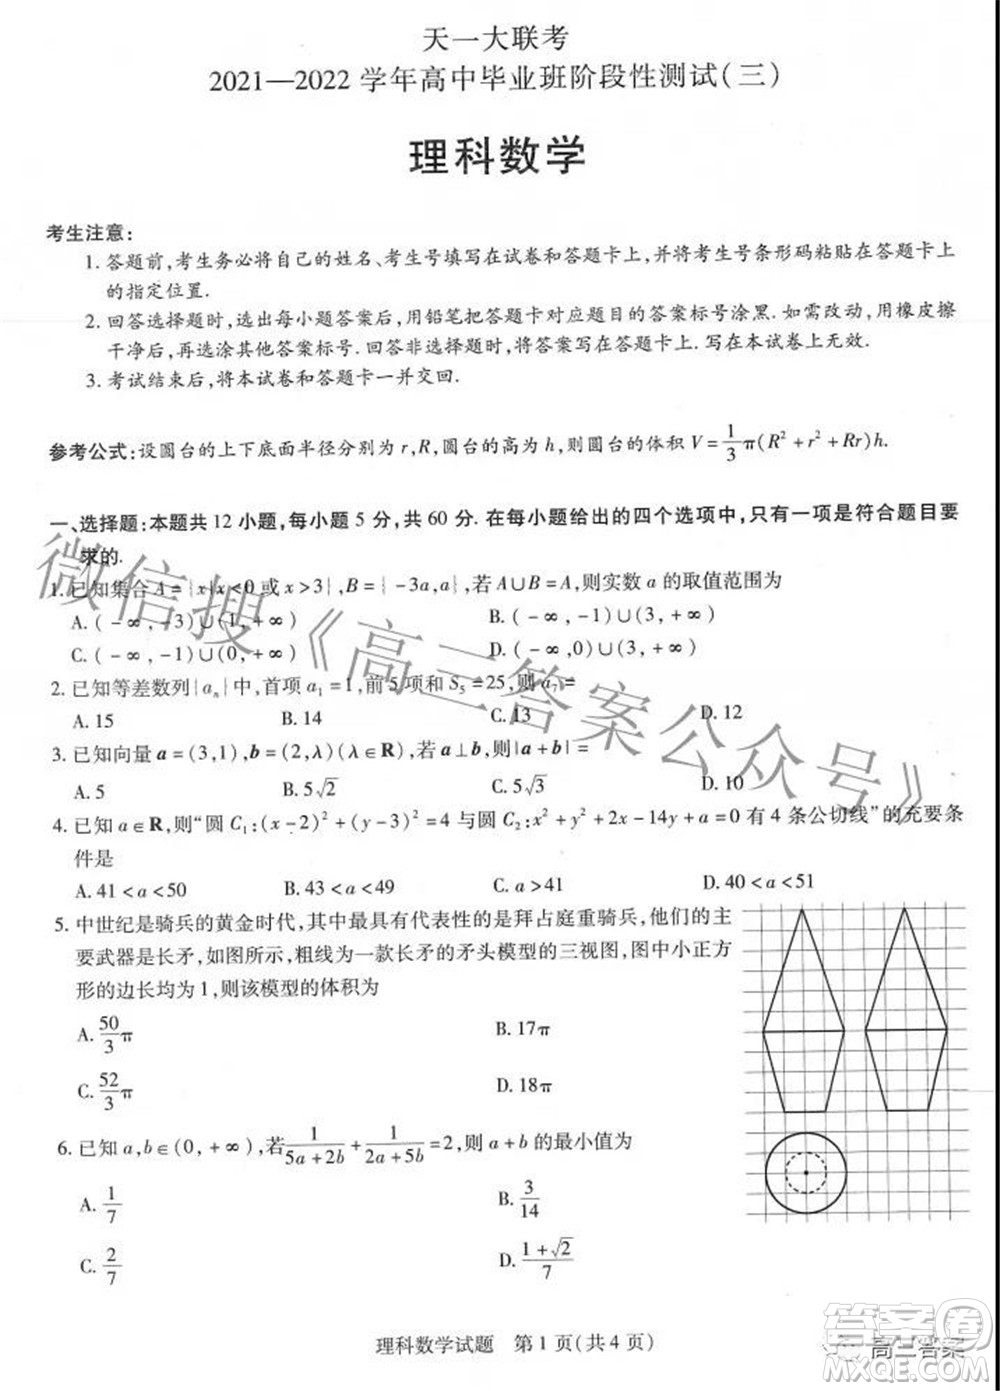 天一大联考
2021—2022 学年高中毕业班阶段性测试(三)
理科数学
考生注意:
1. 答题前,考生务必将自己的姓名、考生号填写在试卷和答题卡上,并将考生号条形码粘贴在答题卡上
的指定位置.
2. 回答选择题时,选出每小题答案后,用铅笔把答题卡对应题目的答案标号涂黑. 如需改动,用橡皮擦
干净后,再选涂其他答案标号. 回答非选择题时,将答案写在答题卡上. 写在本试卷上无效.
3. 考试结束后,将本试卷和答题卡一并交回.
参考公式:设圆台的上下底面半径分别为 r,R,圆台的高为 h,则圆台的体积 V=1/3 π(R²+r²+Rr)h.
一、选择题:本题共 12 小题,每小题 5 分,共 60 分. 在每小题给出的四个选项中,只有一项是符合题目要
求的.
1. 已知集合 A={x|x<0 或 x>3},B={-3a,a},若 A∪B=A,则实数 a 的取值范围为
A. (-∞,-3)∪(1,+∞) B. (-∞,-1)∪(3,+∞)
C. (-∞,-1)∪(0,+∞) D. (-∞,0)∪(3,+∞)
2. 已知等差数列{aₙ}中,首项 a₁=1,前 5 项和 S₅=25,则 a₇=
A. 15 B. 14 C. 13 D. 12
3. 已知向量 a=(3,1),b=(2,λ)(λ∈R),若 a⊥b,则|a+b|=
A. 5 B. 5√2 C. 5√3 D. 10
4. 已知 a∈R,则“圆 C₁:(x-2)²+(y-3)²=4 与圆 C₂:x²+y²+2x-14y+a=0 有 4 条公切线”的充要条
件是
A. 41<a<50 B. 43<a<49 C. a>41 D. 40<a<51
5. 中世纪是骑兵的黄金时代,其中最具有代表性的是拜占庭重骑兵,他们的主
要武器是长矛,如图所示,粗线为一款长矛的矛头模型的三视图,图中小正方
形的边长均为 1,则该模型的体积为
A. 50/3 π B. 17π
C. 52/3 π D. 18π
6. 已知 a,b∈(0,+∞),若 1/(5a+2b) + 1/(2a+5b) =2,则 a+b 的最小值为
A. 1/7 B. 3/14
C. 2/7 D. (1+√2)/7
理科数学试题 第 1 页(共 4 页)
微信搜《高三答案公众号》
高三答案
答案圈
MXQE.COM